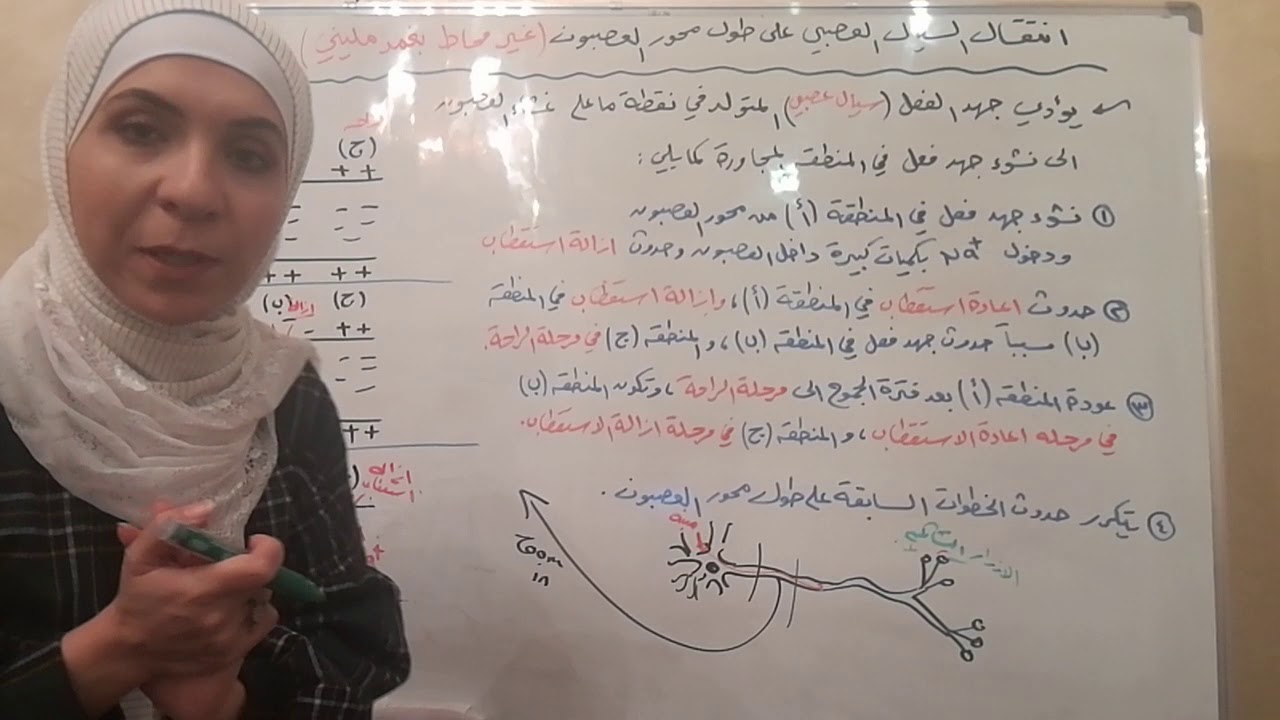 انتقال السيال العصبي على طول محور العصبون (غير محاط بغمد مليني)
يؤدي جهد الفعل (سيال عصبي) المتولد في نقطة ما على غشاء العصبون
الى نشوء جهد فعل في المنطقه المجاورة كمايلي :
① نشوء جهد فعل في المنطقة (أ) من محور العصبون
ودخول Na+ بكميات كبيرة داخل العصبون وحدوث ازالة استقطاب
② حدوث اعادة استقطاب في المنطقة (أ)، وازالة استقطاب في المنطقه
(ب) مسبباً حدوث جهد فعل في المنطقه (ب)، والمنطقه (ج) في مرحلة الراحة.
③ عودة المنطقه (أ) بعد فترة الجموح الى مرحلة الراحة، وتكون المنطقه (ب)
في مرحله اعادة الاستقطاب، والمنطقه (ج) في مرحلة ازالة الاستقطاب.
④ يتكرر حدوث الخطوات السابقة على طول محور العصبون.
منبه
راحه
(ج)
+ +
- -
- -
- -
+ + + +
(ج) (ب)
ازالة
+ +
+ +
ازالة
استقطاب